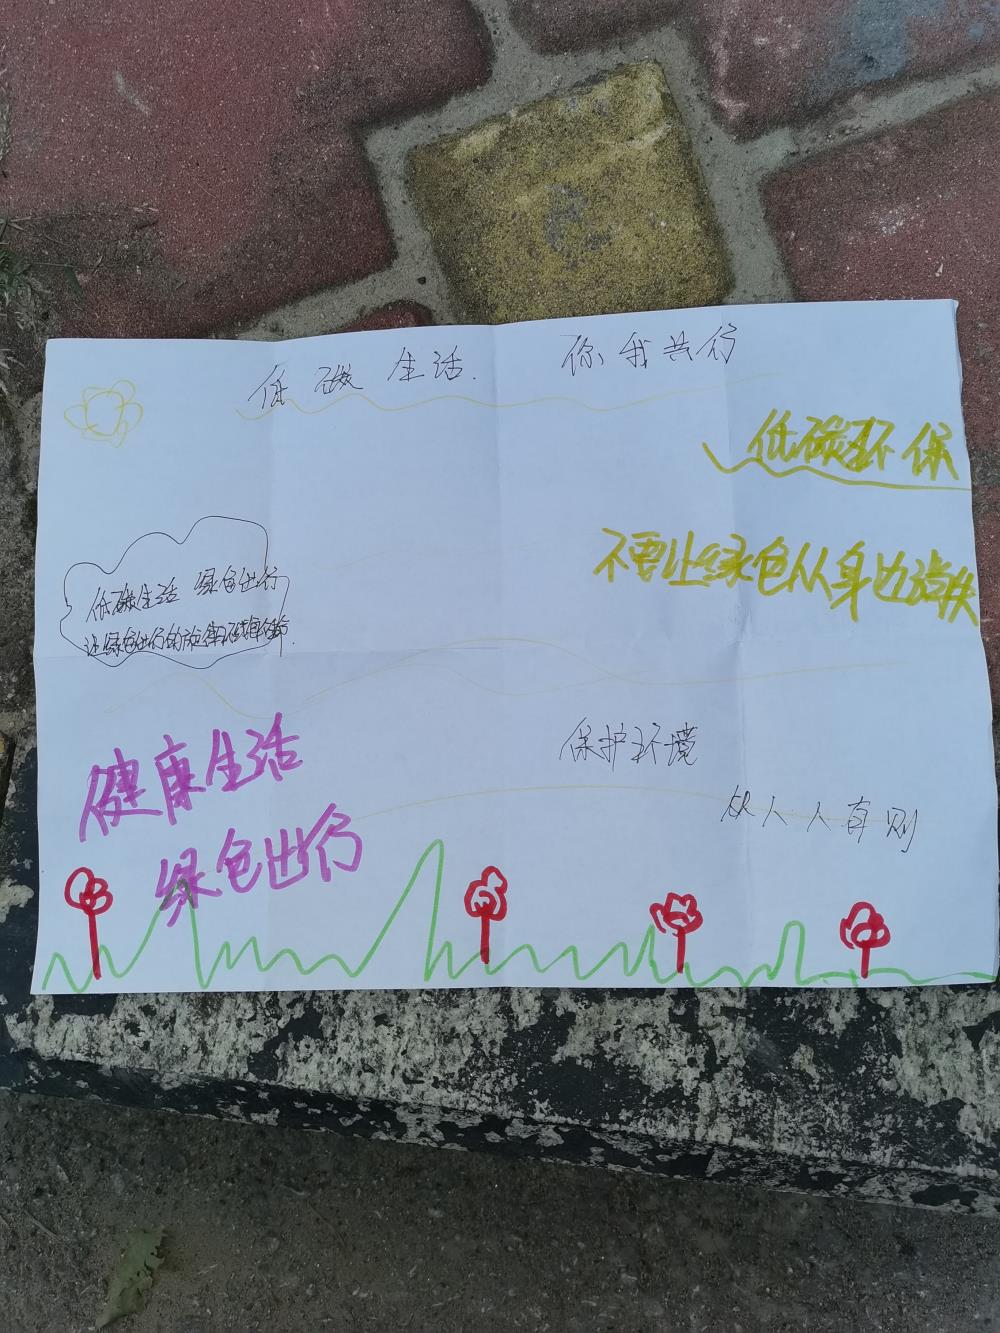 低碳生活 你我共行
低碳环保
不要让绿色从身边消失
低碳生活 绿色出行
让绿色出行的旋律
健康生活
绿色出行
保护环境
从人人有则